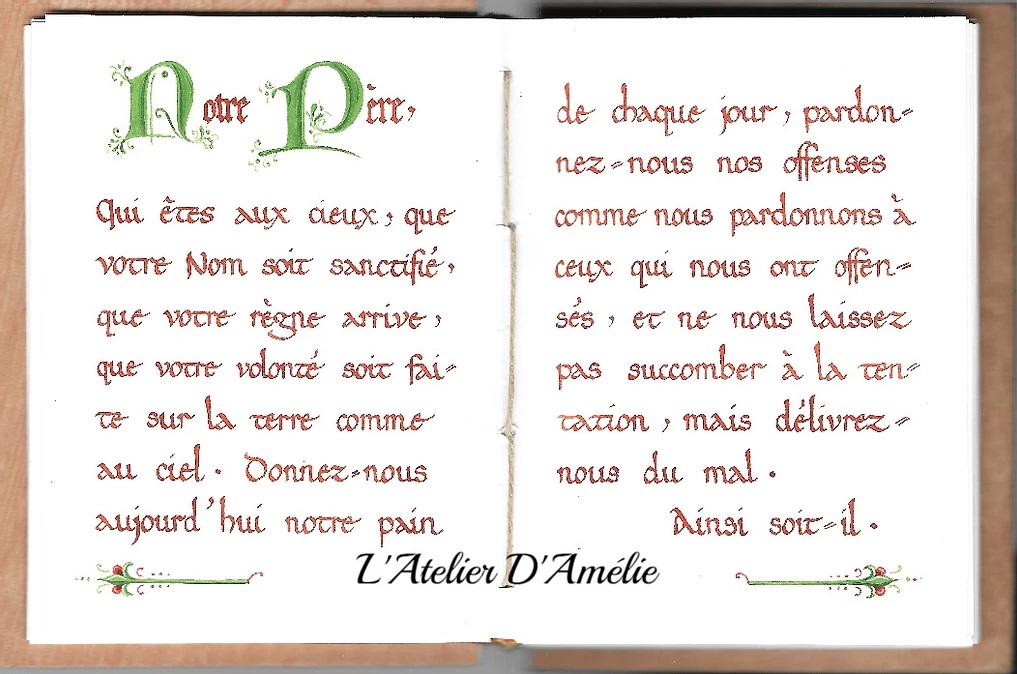 Notre Père,
Qui êtes aux cieux, que
votre Nom soit sanctifié,
que votre règne arrive,
que votre volonté soit fai-
te sur la terre comme
au ciel. Donnez-nous
aujourd'hui notre pain
de chaque jour, pardon-
nez-nous nos offenses
comme nous pardonnons à
ceux qui nous ont offen-
sés, et ne nous laissez
pas succomber à la ten-
tation, mais délivrez-
nous du mal.
Ainsi soit-il.
L'Atelier D'Amélie